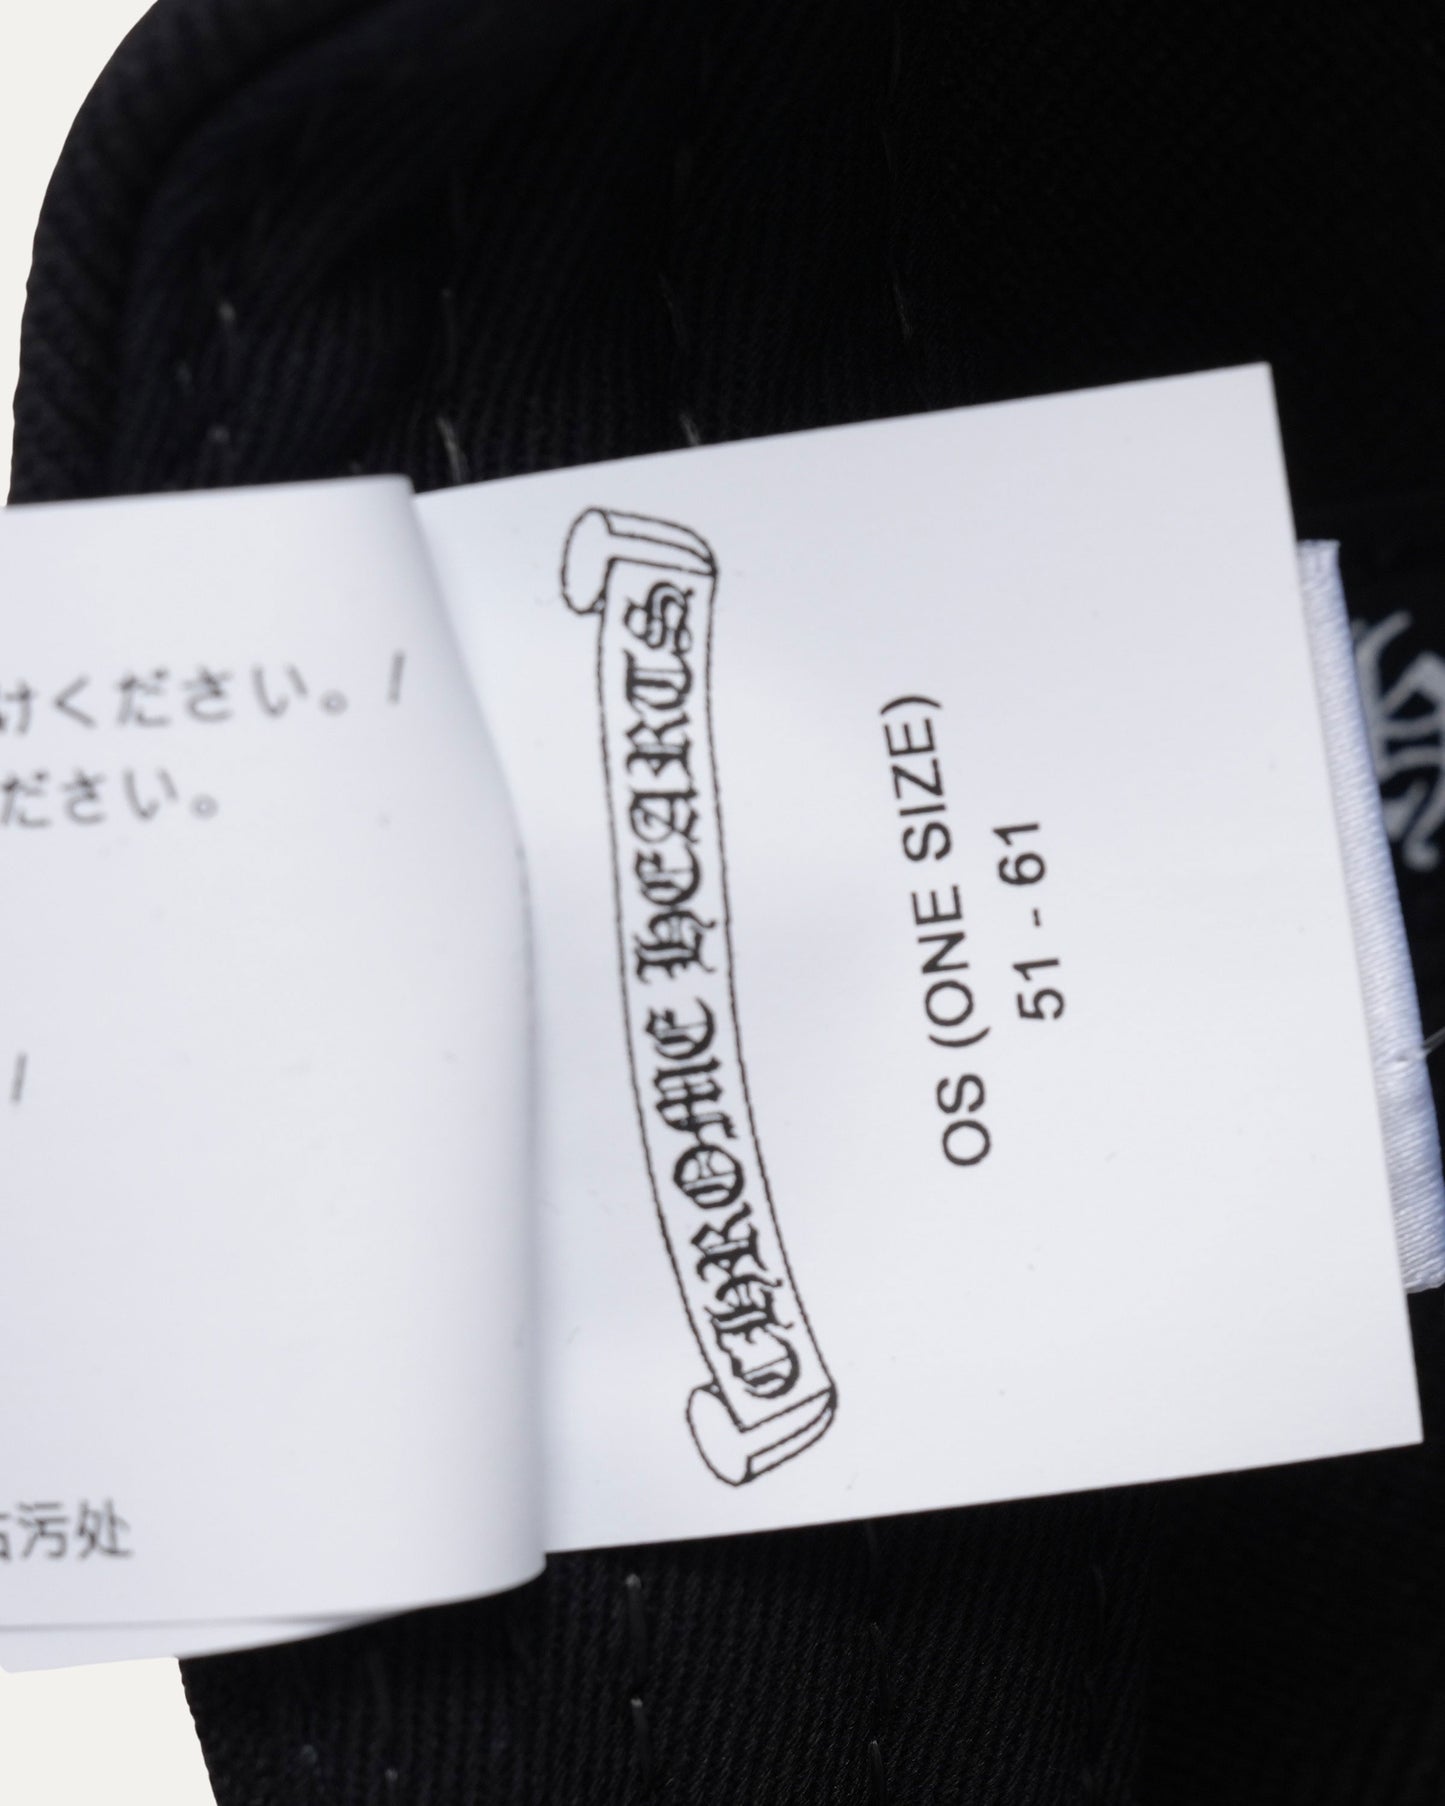 けください。 /
ださい。
/
污处
CHROME HEARTS
OS (ONE SIZE)
51 - 61